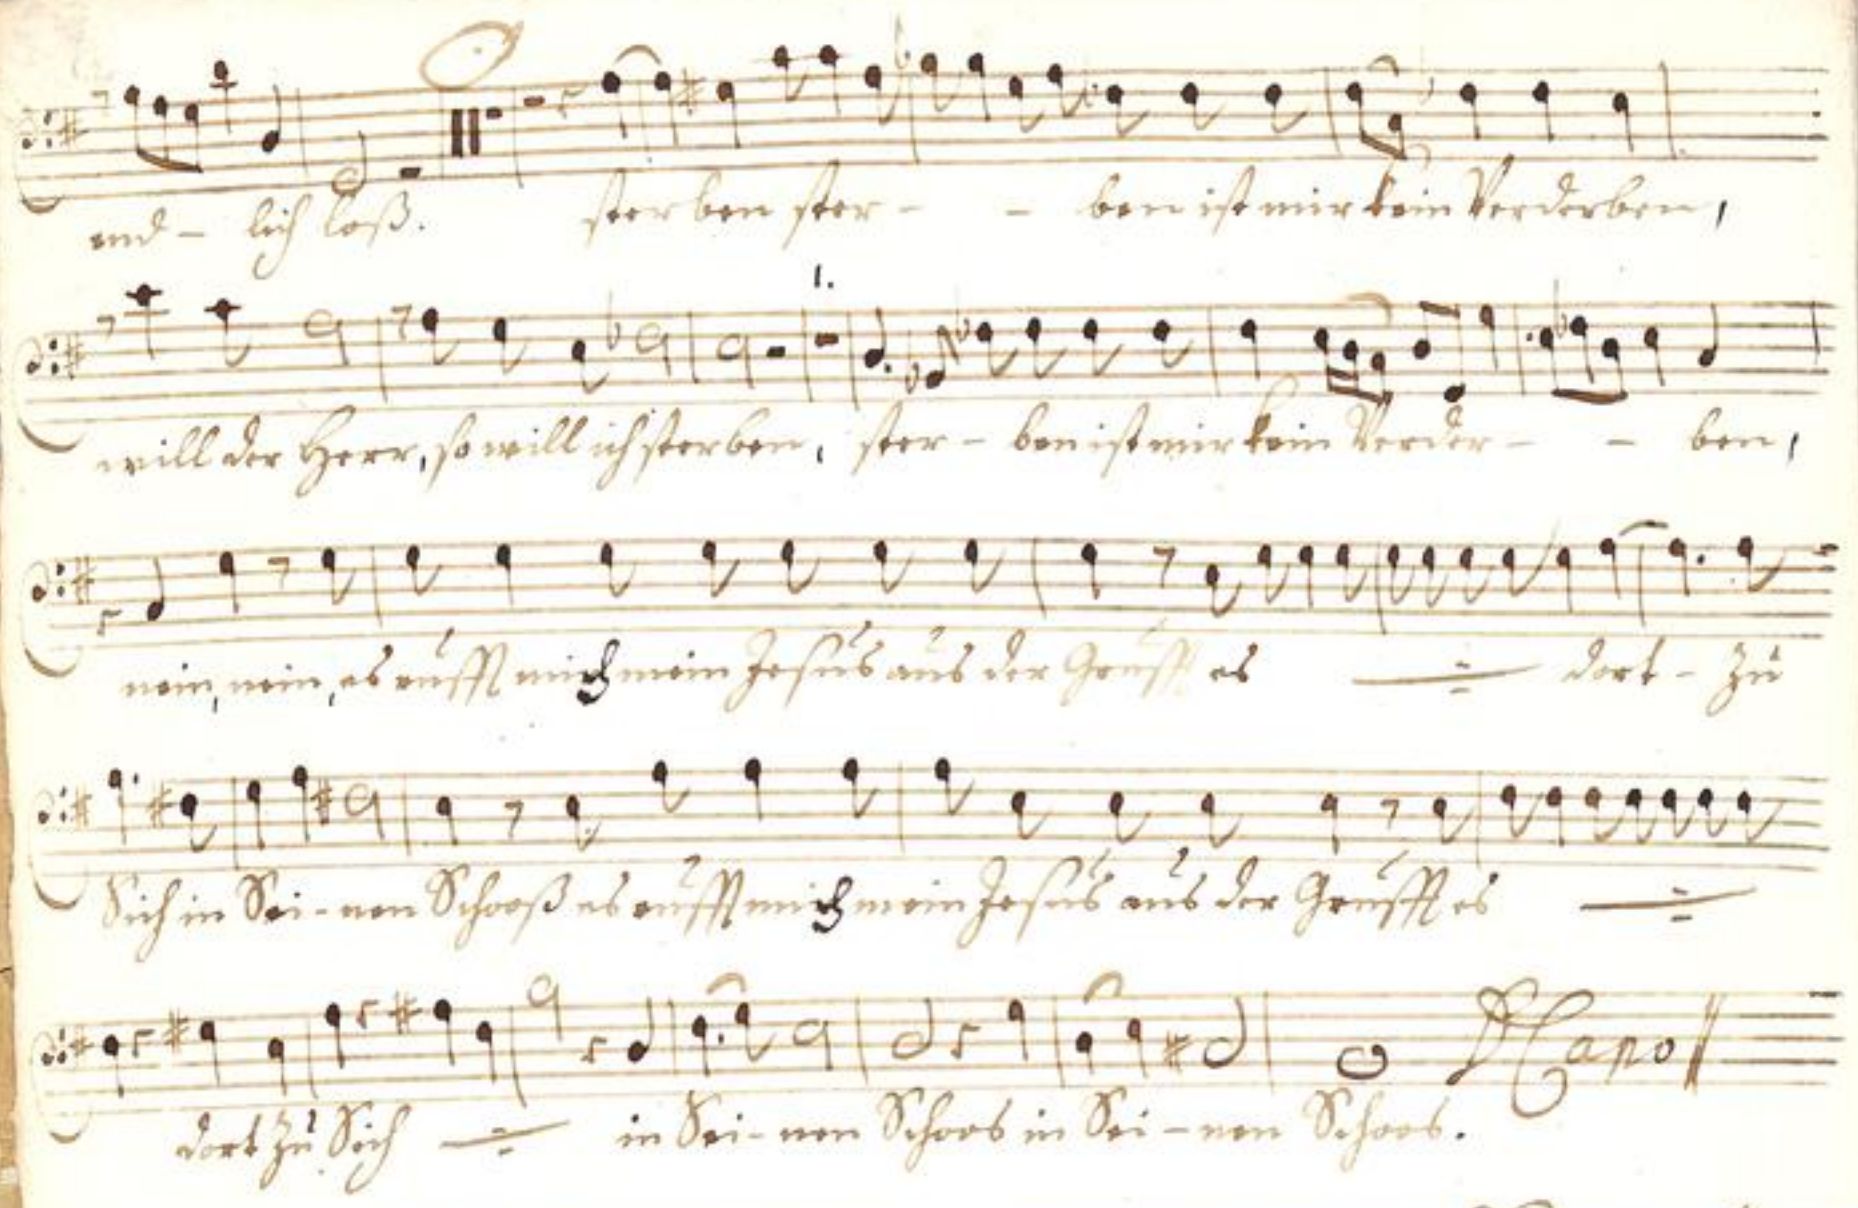 end - lich loß. sterben ster - - ben ist mir kein Verderben,
1.
will der Herr, so will ich sterben, ster - ben ist mir kein Verder - - ben,
nein, nein, es rufft mich mein Jesus aus der Grufft es dort - zu
Sich in Sei - nen Schooß es rufft mich mein Jesus aus der Grufft es
D Capo
dort zu Sich in Sei - nen Schoos in Sei - nen Schoos.